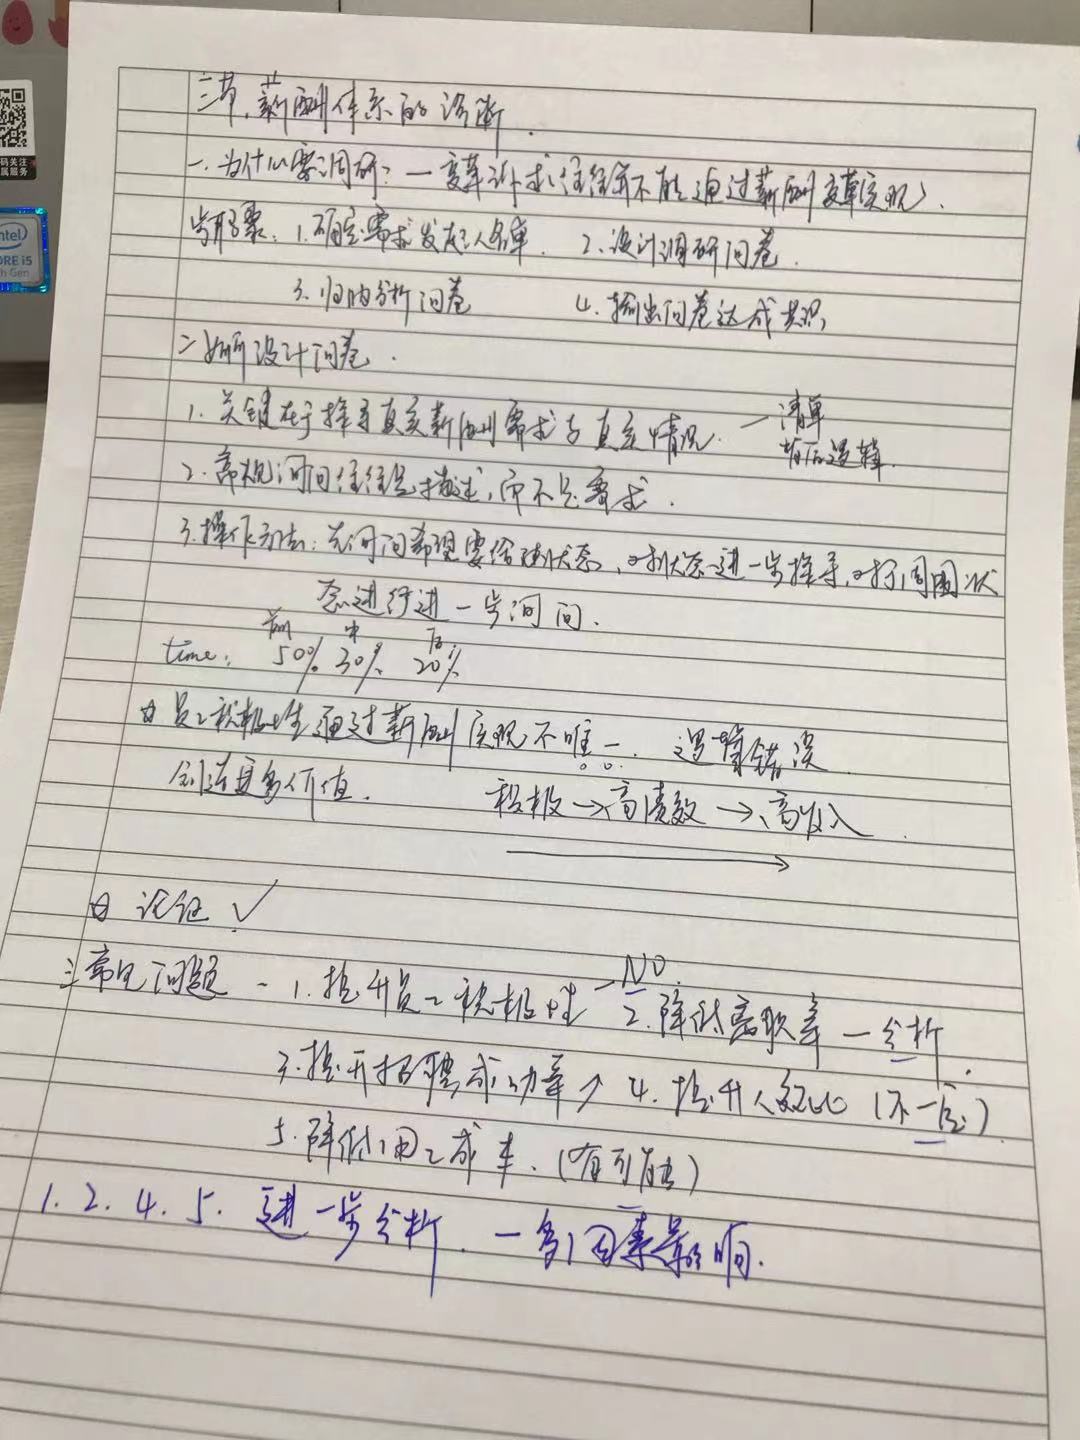 码关注
属服务
intel
CORE i5
th Gen
三节、薪酬体系的诊断.
一.为什么要调研?一变革诉求往往并不能通过薪酬变革实现.
步骤:1.确定需求发起人名单. 2.设计调研问卷.
3.归纳分析问卷 4.输出问卷达成共识
二 如何设计问卷.
1.关键在于探寻真实薪酬需求与真实情况. 一清单
背后逻辑.
2.常规询问往往是描述,而不是需求.
3.操作方法:先询问希望要给到状态,对状态进一步探寻,对周围状
态进行进一步询问.
前 中 后
time: 50% 30% 20%
员工积极性通过薪酬实现不唯一. 逻辑错误
创造更多价值. 积极→高绩效→高收入.
论证 ✓
三常见问题 - 1.提升员工积极性 -NO. 2.降低离职率 一分析.
3.提升招聘成功率↗ 4.提升人效比(不一定).
5.降低用工成本.(有可能)
1.2.4.5. 进一步分析. 一多因素影响.